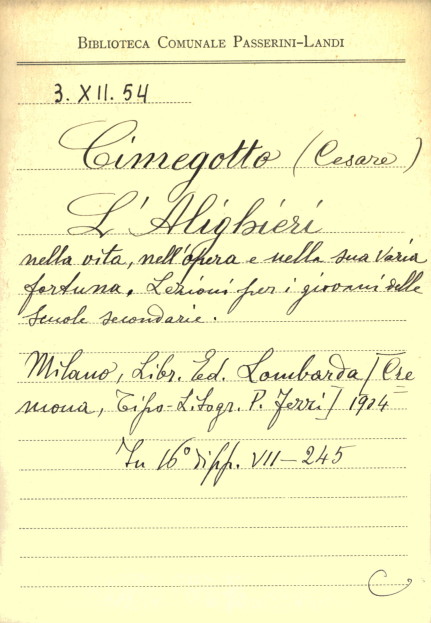 BIBLIOTECA COMUNALE PASSERINI-LANDI
3. XII. 54
Cimegotto (Cesare)
L'Alighieri
nella vita, nell'opera e nella sua varia
fortuna. Lezioni per i giovani delle
scuole secondarie.
Milano, Libr. Ed. Lombarda [Cre
mona, Tipo-Litogr. P. Ferri] 1904
In 16° di pp. VII-245